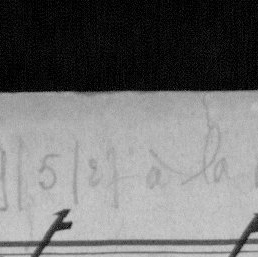 | 5 | 2 } à la